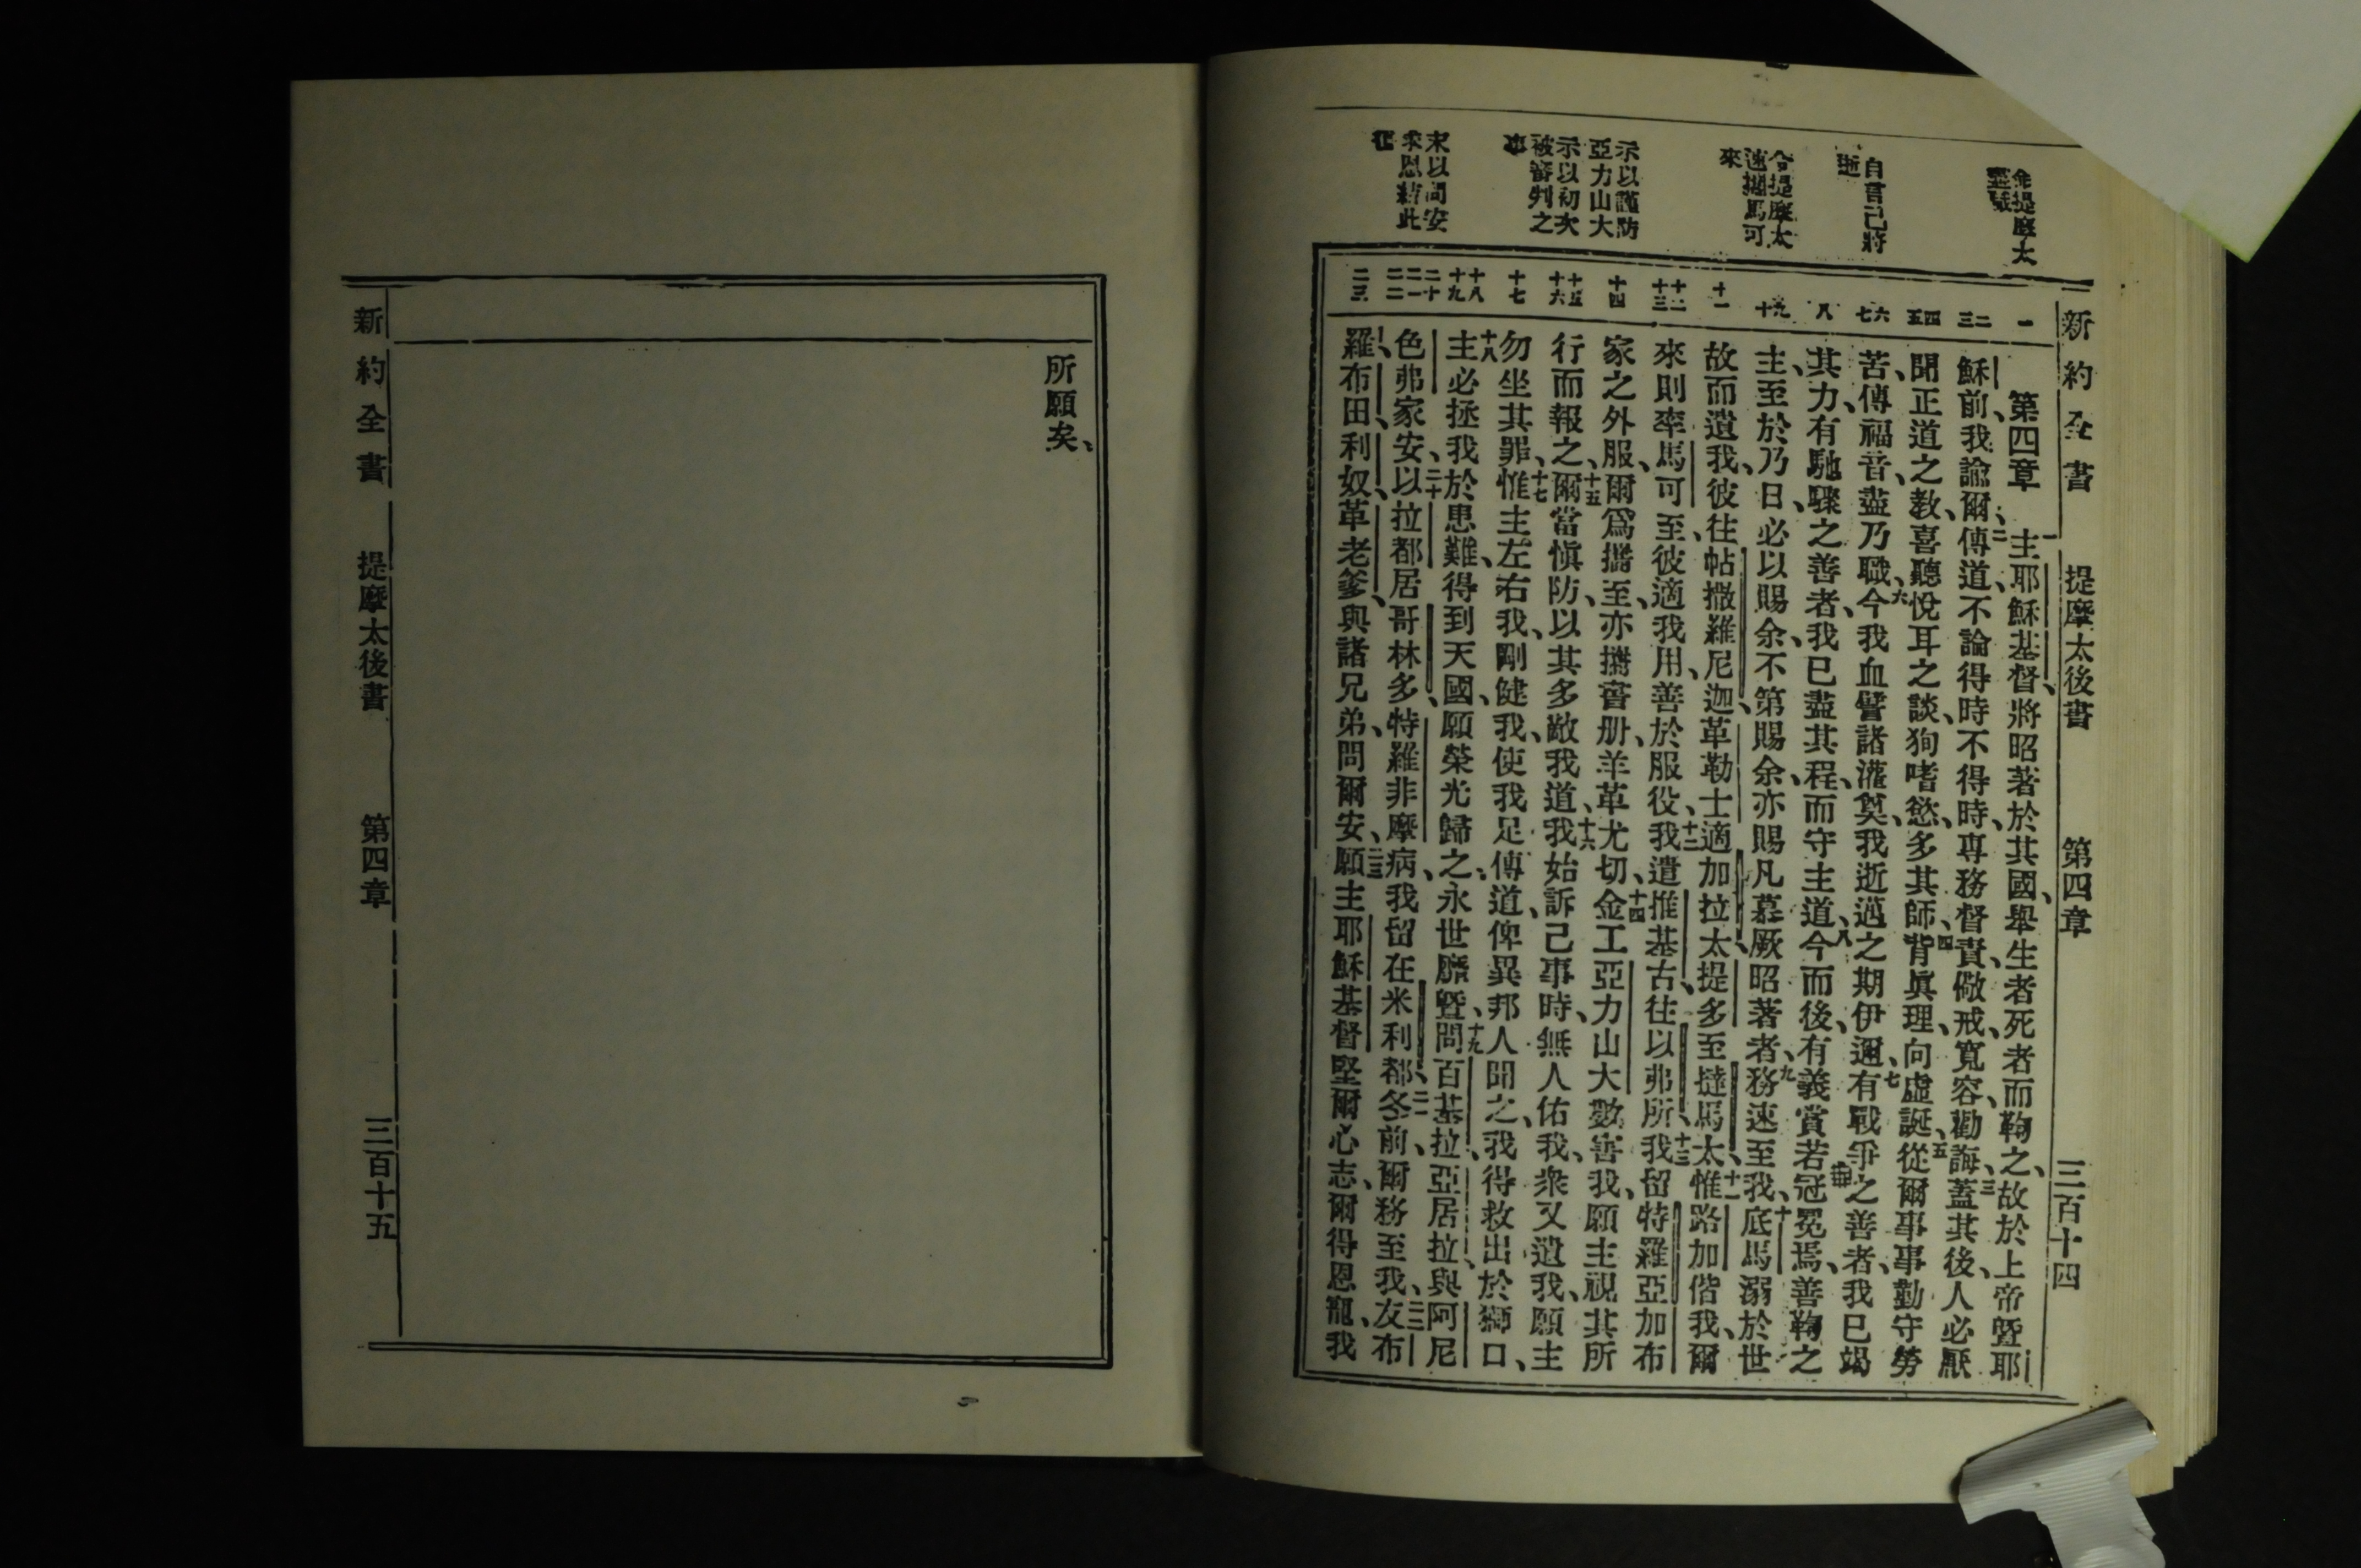 新約全書 提摩太後書 第四章 三百十四
命提摩太
自言己將
逝
令提摩太
速攜馬可
來
示以謹防
亞力山大
示以初次
被審判之
事
末以問安
求恩結此
一
二
三
四
五
六
七
八
九
十
十一
十二
十三
十四
十五
十六
十七
十八
十九
二十
二一
二二
二三
第四章 一主耶穌基督、將昭著於其國、舉生者死者而鞫之、故於上帝暨耶
穌前、我諭爾、二傳道、不論得時不得時、專務督責、儆戒、寬容、勸誨、三蓋其後、人必厭
聞正道之教、喜聽悅耳之談、狥嗜慾、多其師、四背眞理、向虛誕、五從爾事事勤守勞
苦、傳福音、盡乃職、六今我血譬諸灌奠、我逝邁之期伊邇、七有戰爭之善者、我已竭
其力、有馳驟之善者、我已盡其程、而守主道、八今而後、有義賞若冠冕焉、善鞫之
主、至於乃日、必以賜余、不第賜余、亦賜凡慕厥昭著者、九務速至我、十底馬溺於世
故而遺我、彼往帖撒羅尼迦、革勒士適加拉太、提多至撻馬太、十一惟路加偕我、爾
來則率馬可至、彼適我用、善於服役、十二我遣推基古、往以弗所、十三我留特羅亞加布
家之外服、爾爲攜至、亦攜書册、羊革尤切、十四金工亞力山大數害我、願主視其所
行而報之、十五爾當愼防、以其多敵我道、十六我始訴己事時、無人佑我、衆又遺我、願主
勿坐其罪、十七惟主左右我、剛健我、使我足傳道、俾異邦人聞之、我得救出於獅口、
十八主必拯我於患難、得到天國、願榮光歸之、永世靡曁、十九問百基拉、亞居拉、與阿尼
色弗家安、二十以拉都居哥林多、特羅非摩病、我留在米利都、二一冬前爾務至我、二二友布
羅、布田、利奴、革老爹、與諸兄弟、問爾安、二三願主耶穌基督堅爾心志、爾得恩寵、我
所願矣、
新約全書 提摩太後書 第四章 三百十五